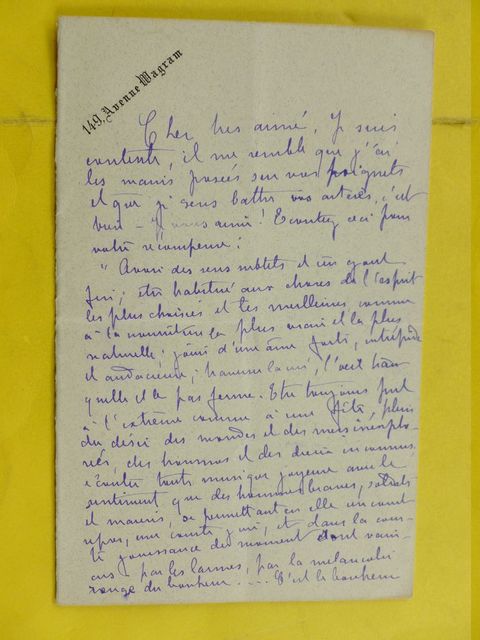 149, Avenue Wagram
Cher très aimé, Je suis
contente, il me semble que j'ai
les mains posées sur vos poignets
et que je sens battre vos artères, c'est
bon – je vous aime ! Ecoutez ceci pour
votre récompense :
"Avoir des sens subtils et un goût
fin ; être habitué aux choses de l'esprit
les plus choisies et les meilleures comme
à la nourriture la plus vraie et la plus
naturelle ; jouir d'une âme forte, intrépide
et audacieuse ; traverser la vie, l'œil tran
quille et le pas ferme. Etre toujours prêt
à l'extrême comme à une fête, plein
du désir des mondes et des mers inexplo-
rés, des hommes et des dieux inconnus,
écouter toute musique joyeuse avec le
sentiment que des hommes braves, soldats
et marins, se permettent en elle un court
repos, une courte joie, et dans la
jouissance du moment sont vain-
cus par les larmes, par la mélancolie
rouge du bonheur .... C'est le bonheur